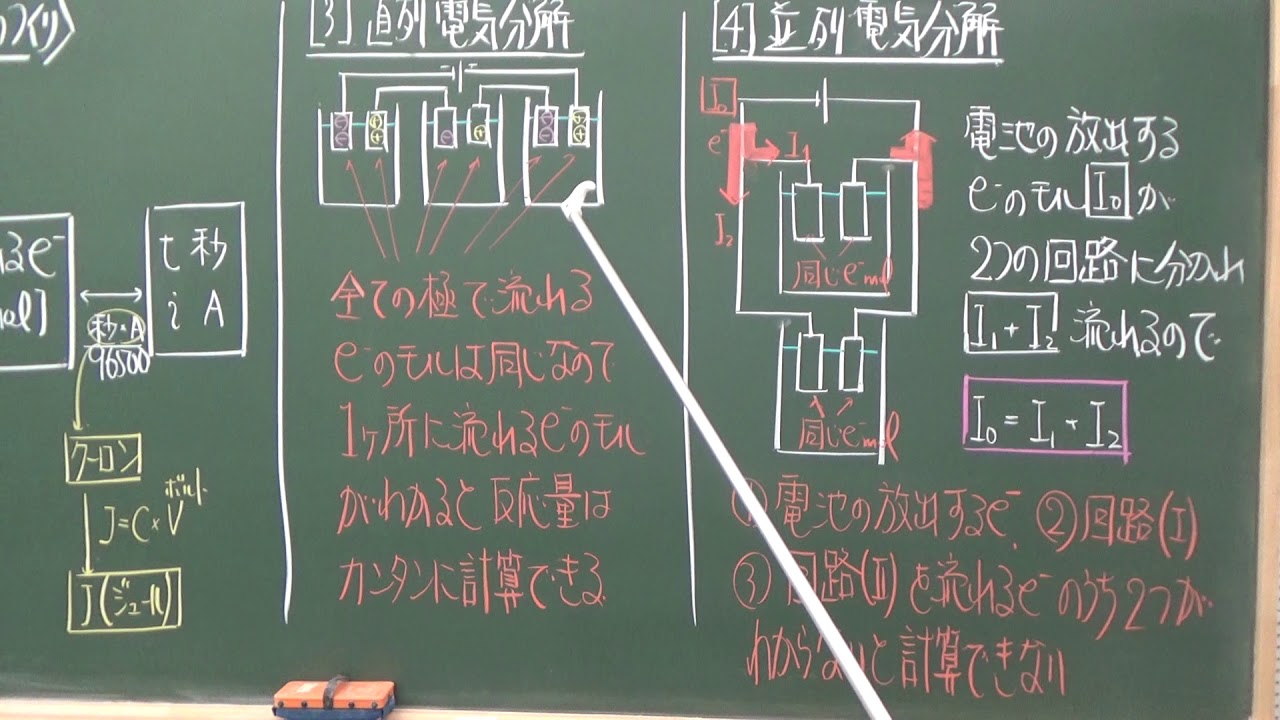 つくり〉
るe⁻
mol]
秒×A
96500
t 秒
i A
クーロン
J=C×V
ボルト
J(ジュール)
[3] 直列電気分解
全ての極で流れる
e⁻のモルは同じなので
1ヶ所に流れるe⁻のモル
がわかると反応量は
カンタンに計算できる
[4] 並列電気分解
I₀
e⁻
I₁
I₂
同じe⁻mol
同じe⁻mol
電池の放出する
e⁻のモル I₀ が
2つの回路に分かれ
I₁+I₂ 流れるので
I₀ = I₁ + I₂
①電池の放出するe⁻、②回路(I)
③回路(II)を流れるe⁻のうち2つが
わからないと計算できない